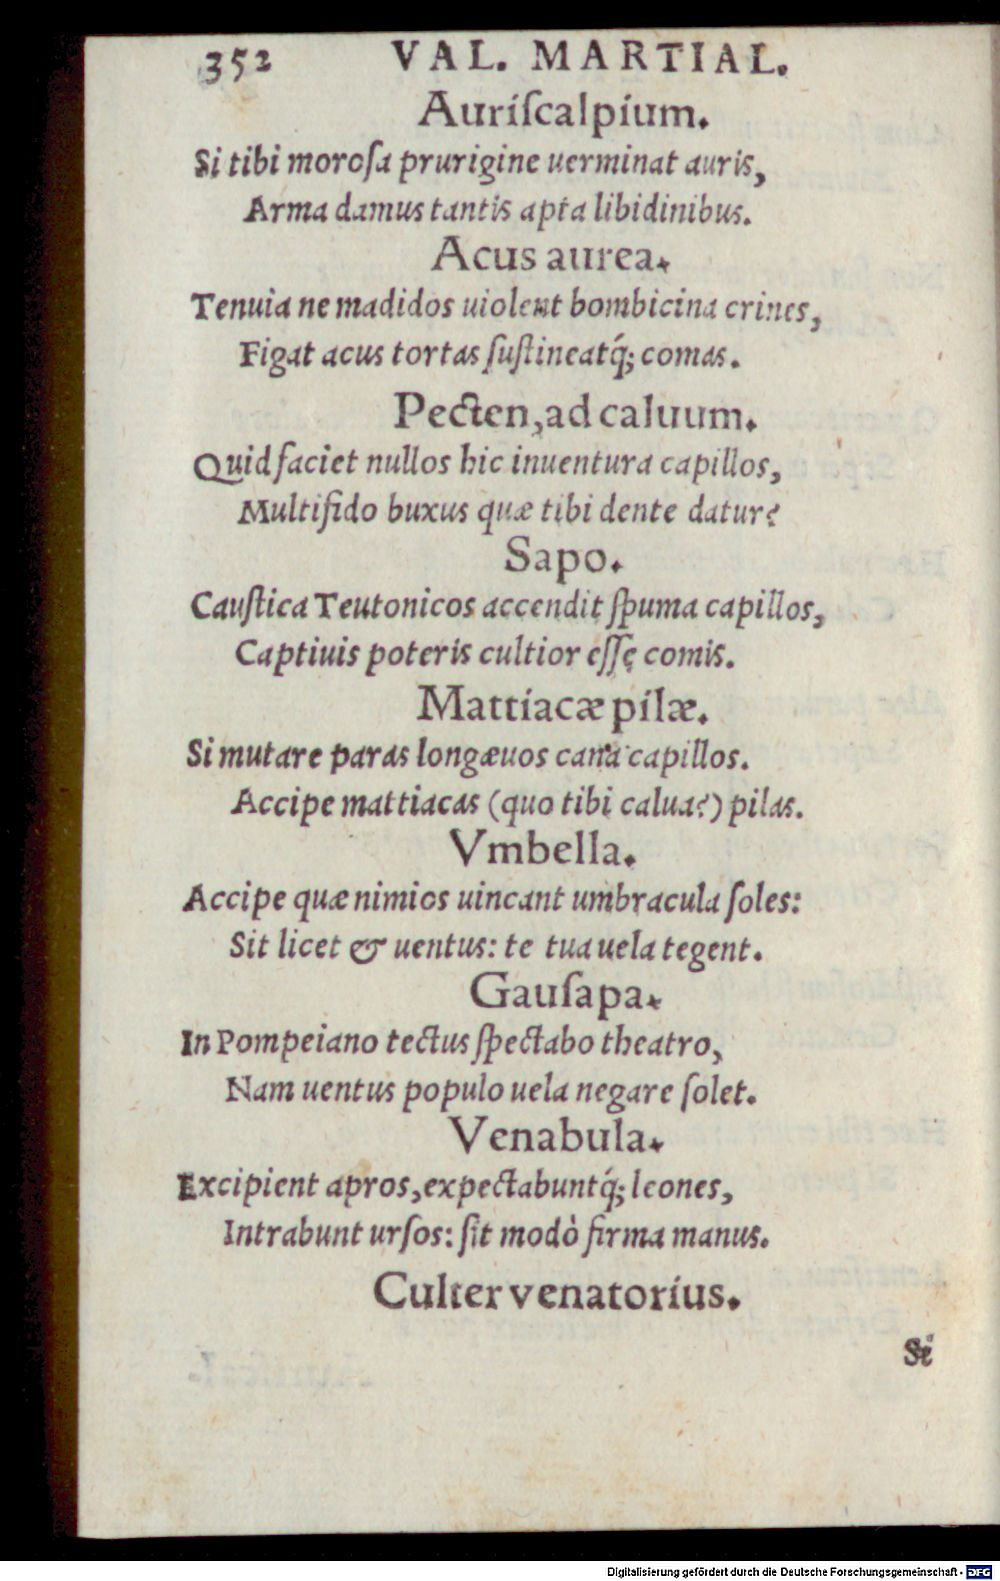 352 VAL. MARTIAL.
Auriſcalpium.
Si tibi moroſa prurigine uerminat auris,
Arma damus tantis apta libidinibus.
Acus aurea.
Tenuia ne madidos uiolent bombicina crines,
Figat acus tortas ſuſtineatq́; comas.
Pecten, ad caluum.
Quid faciet nullos hic inuentura capillos,
Multifido buxus quæ tibi dente datur?
Sapo.
Cauſtica Teutonicos accendit ſpuma capillos,
Captiuis poteris cultior eſſe comis.
Mattiacæ pilæ.
Si mutare paras longæuos cana capillos.
Accipe mattiacas (quo tibi calua?) pilas.
Vmbella.
Accipe quæ nimios uincant umbracula ſoles:
Sit licet & uentus: te tua uela tegent.
Gauſapa.
In Pompeiano tectus ſpectabo theatro,
Nam uentus populo uela negare ſolet.
Venabula.
Excipient apros, expectabuntq́; leones,
Intrabunt urſos: ſit modò firma manus.
Culter venatorius.
Si
Digitalisierung gefördert durch die Deutsche Forschungsgemeinschaft - DFG